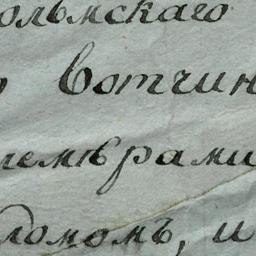 ольмскаго
вотчин
лемѣрами
ломомъ, и